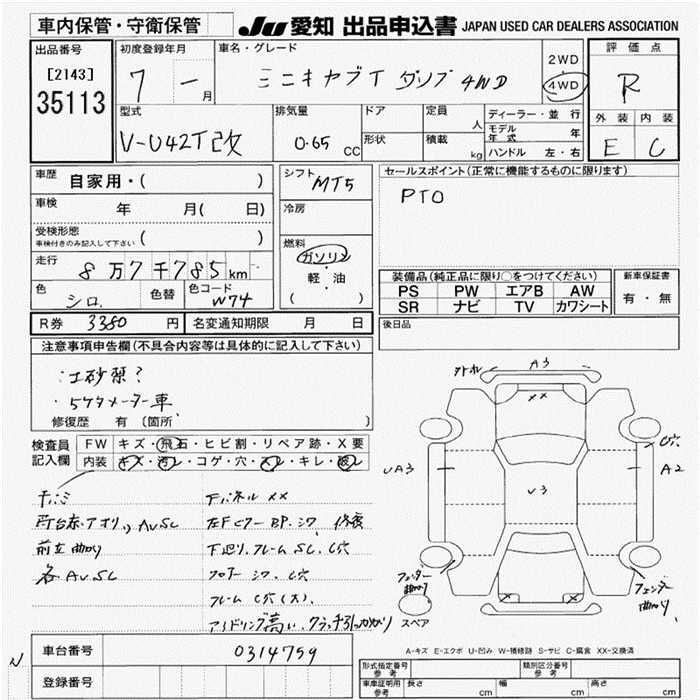 車内保管・守衛保管
JU 愛知 出品申込書 JAPAN USED CAR DEALERS ASSOCIATION
出品番号
[2143]
35113
初度登録年月
7 — 月
車名・グレード
ミニキャブT ダンプ 4WD
2WD
4WD
評価点
R
外装 内装
E C
型式
V-U42T改
排気量
0.65 CC
ドア
形状
定員 人
積載 kg
ディーラー・並行
モデル年式 年
ハンドル 左・右
車歴 自家用・( )
車検 年 月( 日)
受検形態
車検付きのみ記入して下さい ( )
走行 8万7千785km
色 シロ 色替 色コード W74
シフト MT5
冷房
燃料
ガソリン
軽・油
( )
セールスポイント(正常に機能するものに限ります)
PTO
装備品(純正品に限り○をつけてください)
PS PW エアB AW
SR ナビ TV カワシート
新車保証書
有・無
R券 3380円 名変通知期限 月 日
後日品
注意事項申告欄(不具合内容等は具体的に記入して下さい)
・5ケタメーター車
修復歴 有 〔箇所 〕
検査員記入欄
FW キズ・飛石・ヒビ割・リペア跡・X要
内装 キズ・汚レ・コゲ・穴・スレ・キレ・破レ
下パネル XX
荷台赤、アオリ、AVSC
左Fピラー BP.シワ 修復
前立曲り
下廻り、フレーム SC.C穴
各AVSC
フロアー シワ、C穴
フレーム C穴(大)
アイドリング高い、クラッチ引っかかり
A3
XX
UA3
U3
C穴
A2
フェンダー曲り
フェンダー曲り
スペア
A-キズ E-エクボ U-凹み W-補修跡 S-サビ C-腐食 XX-交換済
車台番号 0314799
登録番号
N
形式指定番号 参考
類別区分番号 参考
車庫証明用 参考 長さ cm 幅 cm 高さ cm